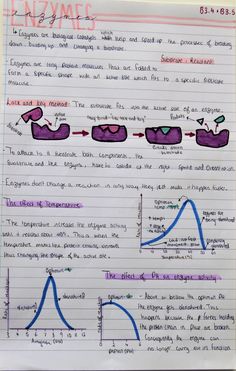 ENZYMES
enzymes
B3.4 + B3.5
↳ Enzymes are biological catalysts which help and speed up the process of breaking
down, building up and changing a substrate.
Substrate: Reactant
Enzymes are long protein molecules that are folded to
form a specific shape with an active site which fits to a specific substrate
molecule.
Lock and Key method: The substrate fits into the active site of an enzyme.
they bind like "lock and key"
To attach to a substrate both components, the
substrate and the enzyme, have to collide at the right speed and orientation.
Enzymes don't change a reaction in any way they just make it happen faster.
The effect of Temperature
The temperature increases the enzyme activity
until it reaches about 40°C. This is when the
temperature makes the protein chains unravel
thus changing the shape of the active site.
Optimum
Enzymes are
being denatured
Temperature (°C)
The effect of pH on enzyme activity
Optimum
denatured
Optimum
protein (pH)
About or below the optimum pH
the enzyme gets denatured. This
happens because the forces holding
the protein chain in place are broken.
Consequently the enzyme can
no longer carry out its function